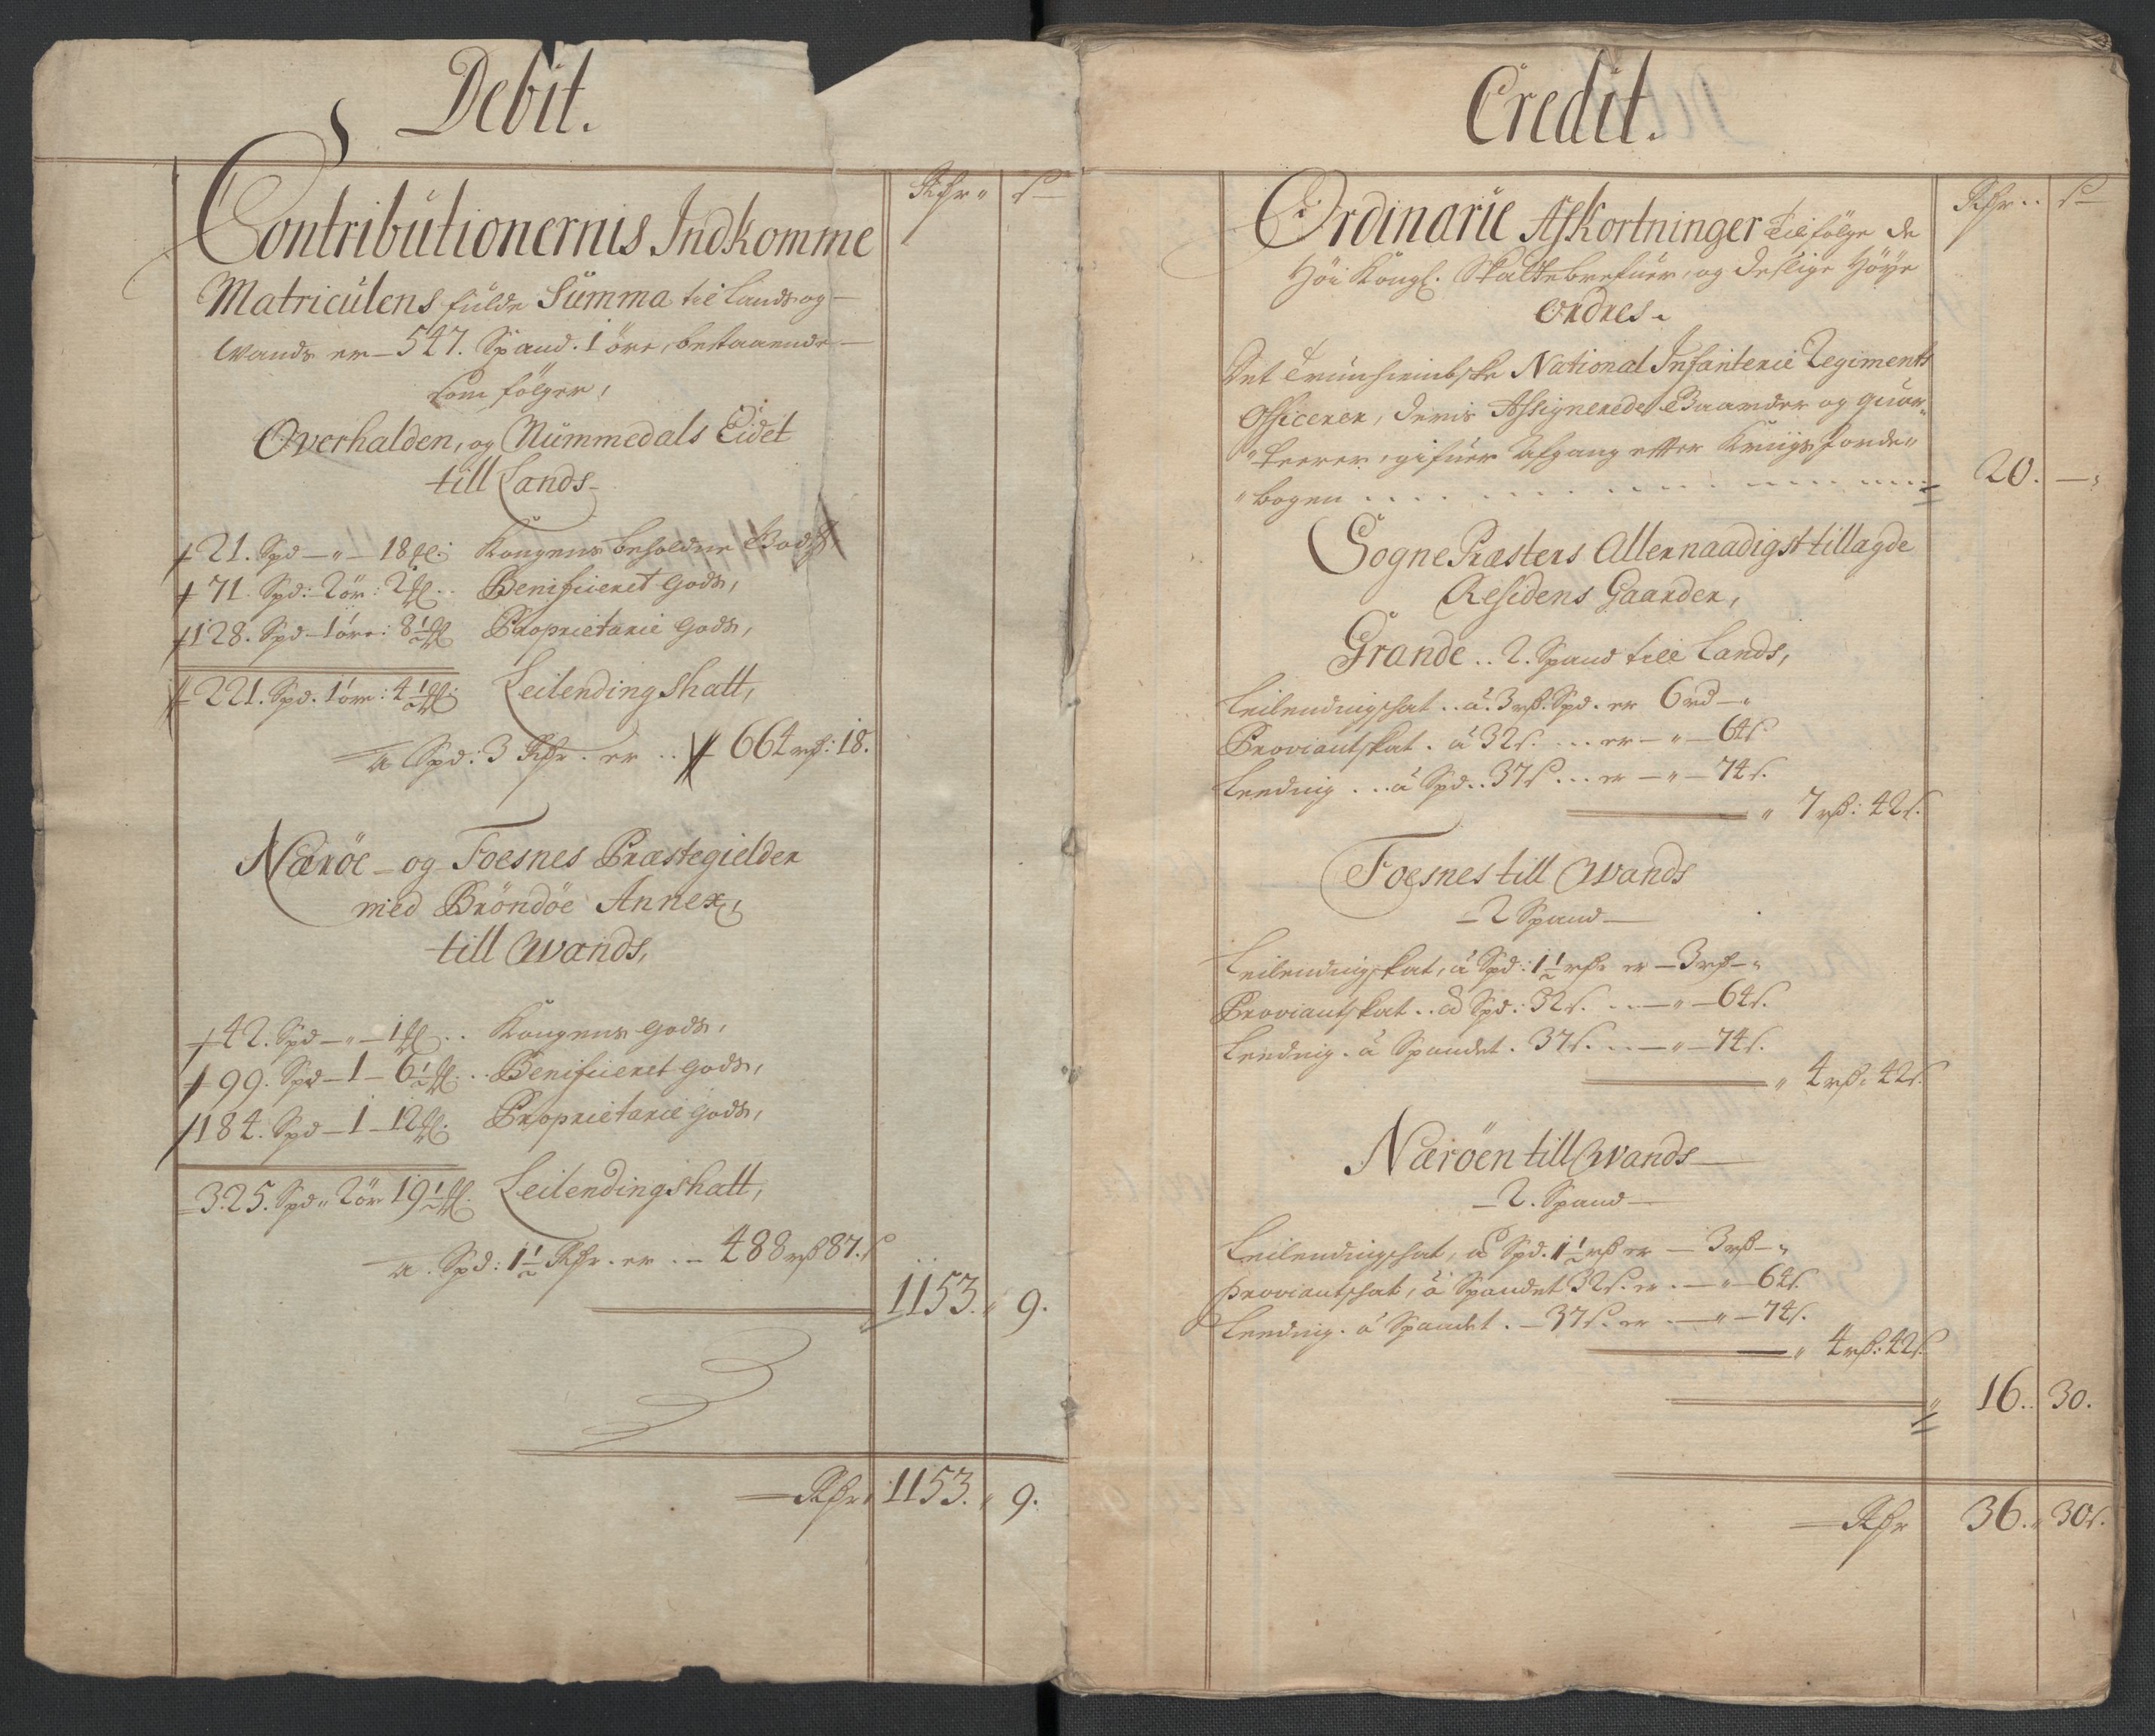 Debit.
Rdr „ s
Contributionernis Indkomme
Matriculens fulde Summa til Lands og
Wands er 547. Spand. 1 öre, bestaaende
som fölger,
Overhalden, og Nummedals Eidet
till Lands
21. Spd — „ — 18 Kongens beholdne Gods,
71. Spd: 2 ör: 2 Benificieret Gods,
128. Spd 1 öre: 8½ Proprietarie Gods,
221. Spd. 1 öre: 4½ Leilendingshatt,
a Spd: 3 Rdr. er .. 664 rd: 18.
Næröe og Foesnes Præstegielder
med Bröndöe Annex,
till Wands,
42. Spd — „ — 1 .. Kongens Gods,
99. Spd — 1 — 6½ .. Benificieret Gods,
184. Spd — 1 — 12 Proprietarie Gods,
325. Spd „ 2 ör 19½ Leilendingshatt,
a. Spd: 1½ Rdr. er .. 488 rd 87. s
1153. „ 9.
Rdr 1153. „ 9.
Credit.
Rdr .. s
Ordinarie Afkortninger Til fölge de
Höi Kongl. Skattebrefuer, og deslige Höÿe
Ordres.
Det Trundhiembske National Infanterie Regiments
Officerer, deris Assignerede Gaarder og quar„
„teerer, gifuer Afgang efter Kriigs Jorde„
„bogen 20. —
Sogne Præsters Allernaadigst tillagde
Residens Gaarder,
Grande .. 2. Spand till Lands,
Leilendingschat .. á 3 rd. Spd. er 6 rd —
Proviantskat. á 32 s. ... er — „ — 64 s
Leeding ... á Spd.. 37 s ... er — „ — 74 s.
„ 7 rd: 42 s.
Foesnes till Wands
2 Spand
Leilendingskat, á Spd: 1½ rdr er — 3 rd —
Proviantskat .. á Spd: 32 s. ... — „ — 64 s.
Leeding. á Spandet. 37 s. ... — „ — 74 s.
„ 4 rd: 42 s.
Næröen till Wands
2. Spand
Leilendingschat, á Spd. 1½ rd er — 3 rd —
Proviantschat, á Spandet 32 s. er. — „ — 64 s.
Leeding. á Spandet. — 37 s. er. — „ — 74 s.
„ 4 rd: 42 s.
16. 30.
Rdr 36. „ 30 s.